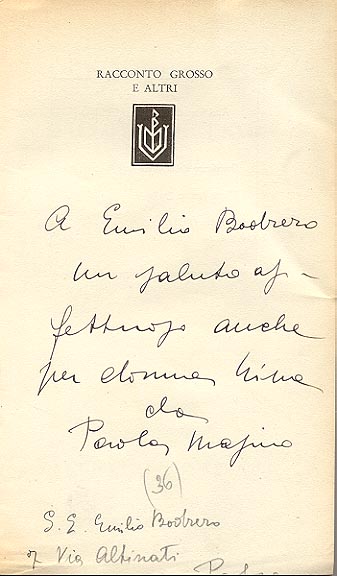 RACCONTO GROSSO
E ALTRI
A Emilio Bodrero
un saluto af-
fettuoso anche
per donna Nina
da
Paola Masino
(36)
S. E. Emilio Bodrero
Via Altinati